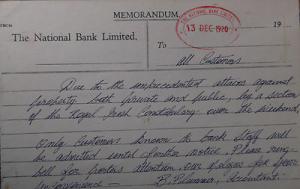 MEMORANDUM.
THE NATIONAL BANK LIMITED
13 DEC 1920
19
From
The National Bank Limited,
To
All Customers
Due to the unprecedented attacks against
property both private and public, by a section
of the Royal Irish Constabulary over the weekend
Only Customers known to bank staff will
be admitted until further notice. Please ring
bell for porters attention,
inconvenience
Accountant.